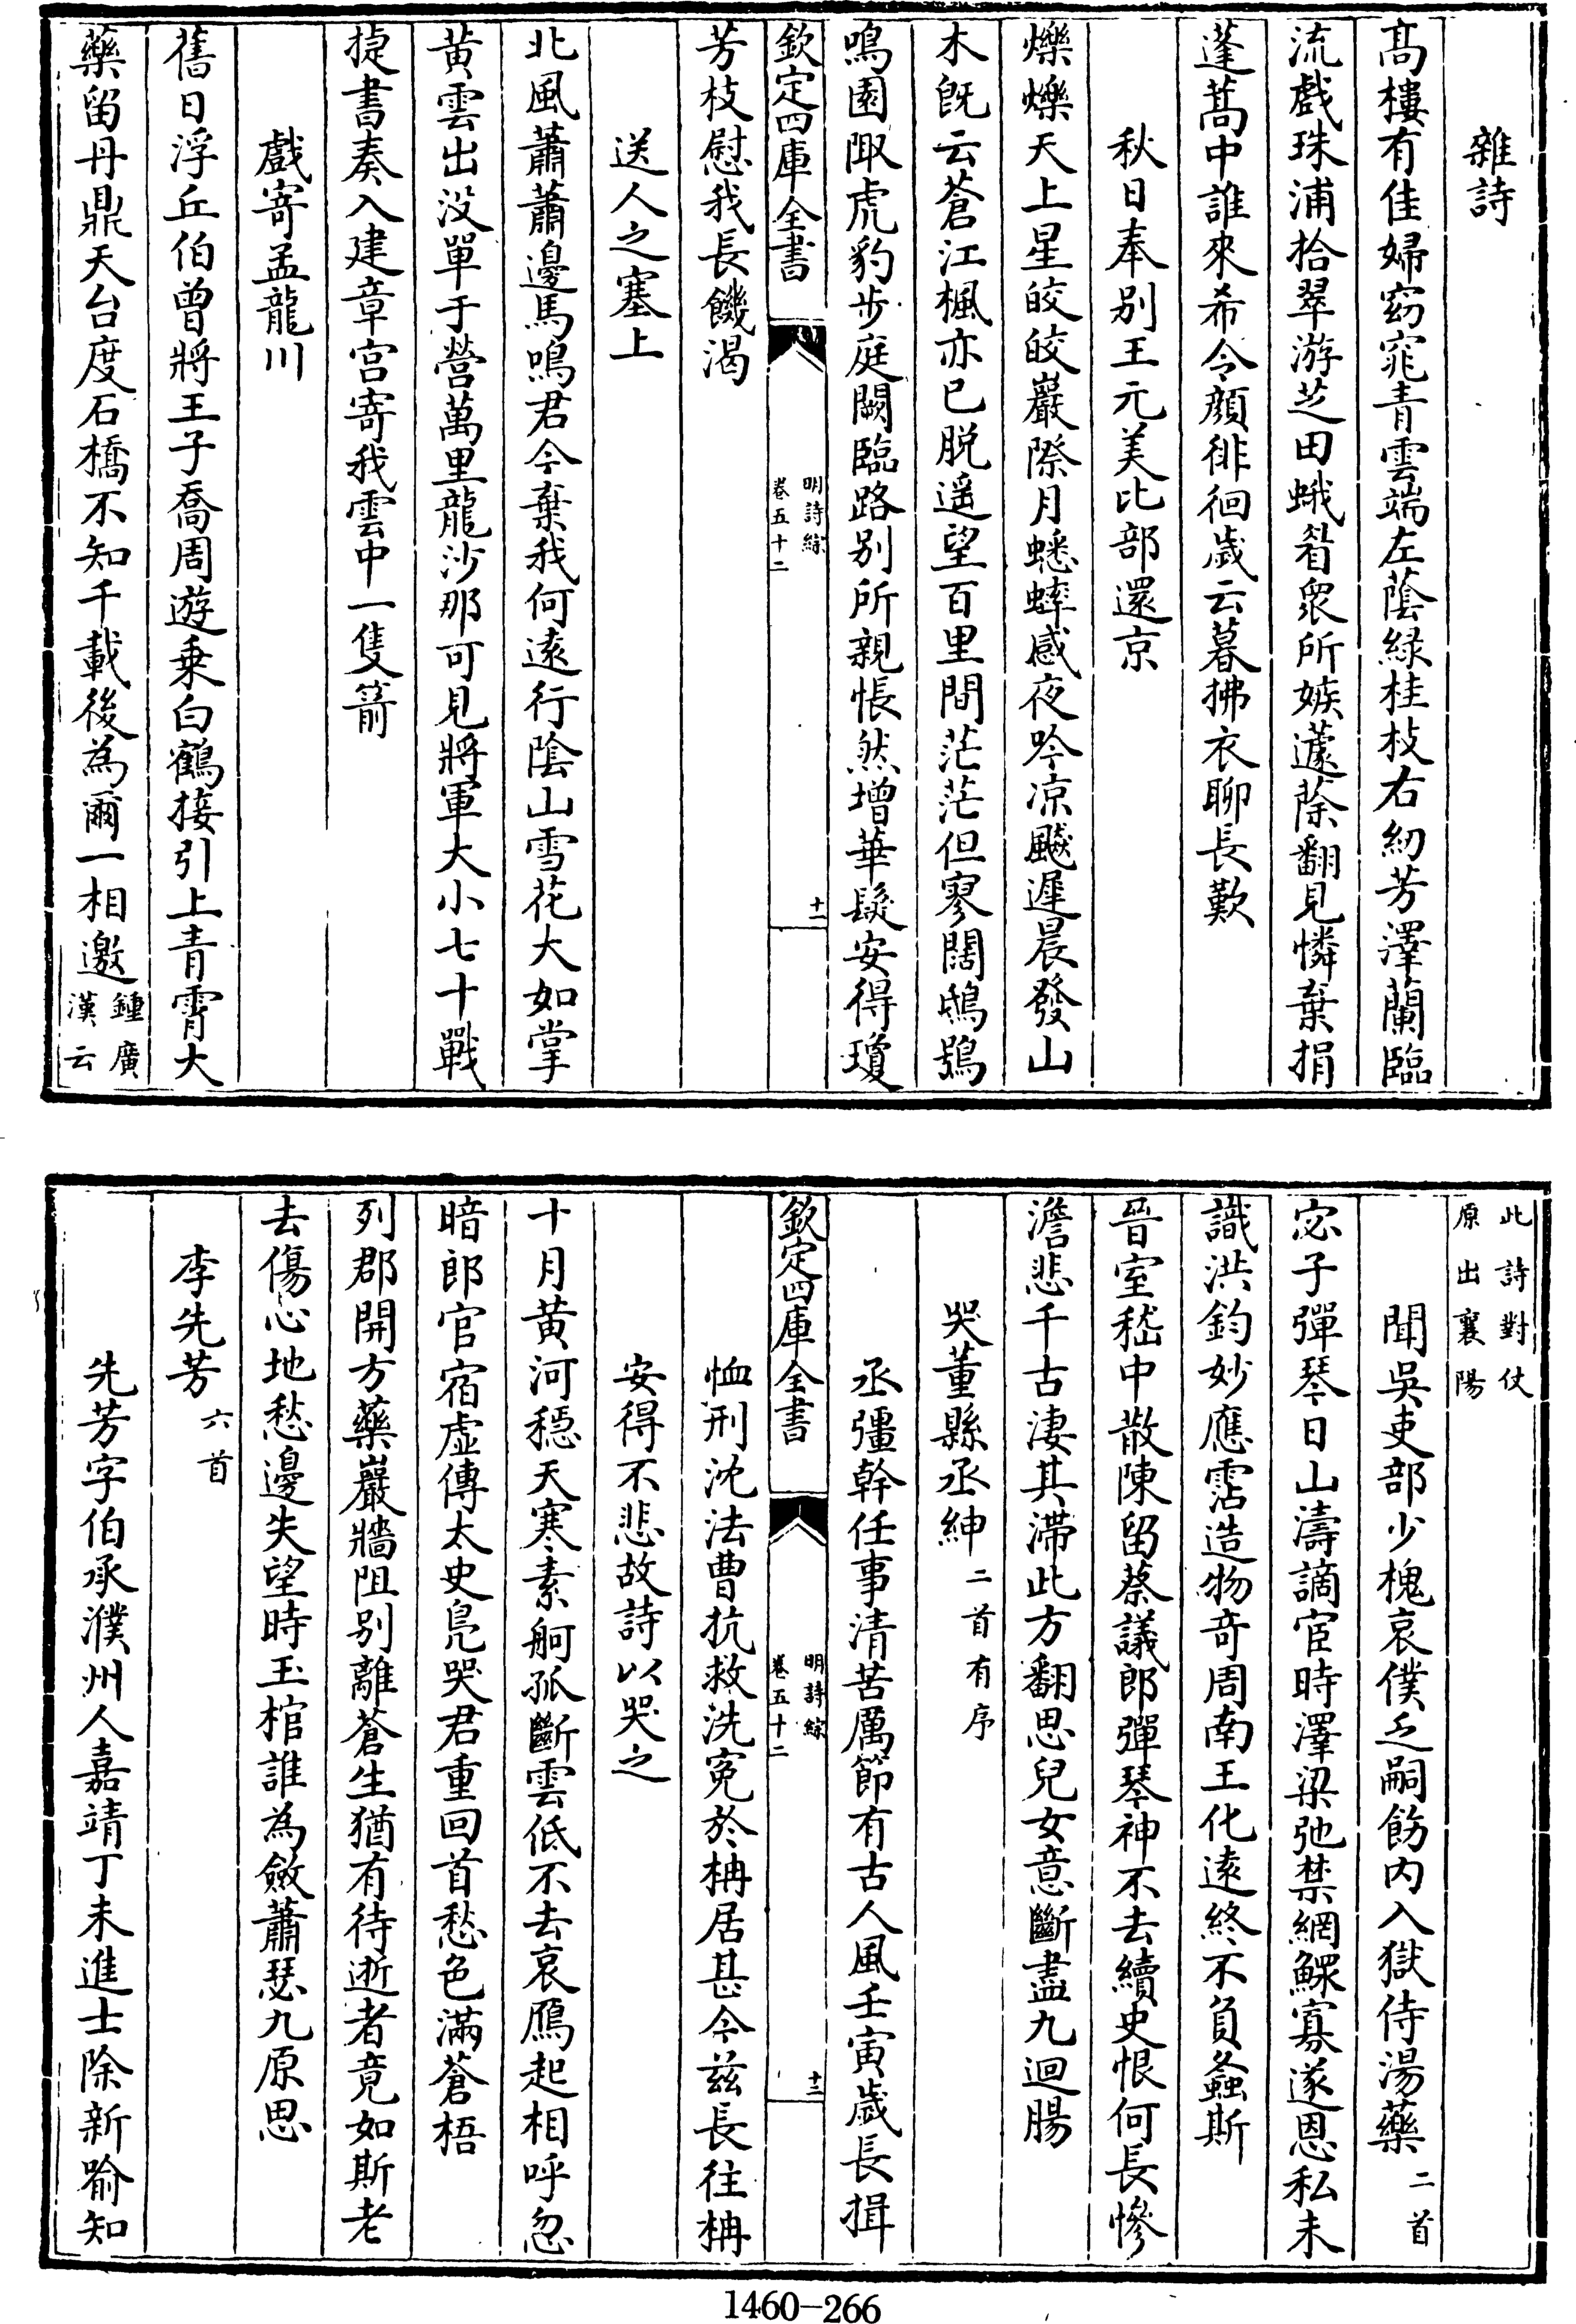 雜詩
髙樓有佳婦窈窕青雲端左蔭緑桂枝右紉芳澤蘭臨
流戲珠浦拾翠游芝田蛾眉衆所嫉蘧蒢翻見憐棄捐
蓬蒿中誰來希令顔徘徊歲云暮拂衣聊長歎
秋日奉别王元美比部還京
爍爍天上星皎皎巖際月蟋蟀感夜吟凉飈遲晨發山
木旣云蒼江楓亦已脱遥望百里間茫茫但寥闊鴟鴞
鳴園陬虎豹步庭闕臨路别所親悵然增華髮安得瓊
欽定四庫全書
明詩綜
卷五十二
十二
芳枝慰我長饑渴
送人之塞上
北風蕭蕭邊馬鳴君今棄我何遠行陰山雪花大如掌
黄雲出没單于營萬里龍沙那可見將軍大小七十戰
捷書奏入建章宫寄我雲中一隻箭
戲寄孟龍川
舊日浮丘伯曾將王子喬周遊乗白鶴接引上青霄大
藥留丹鼎天台度石橋不知千載後為爾一相邀鍾廣漢云
此詩對仗
原出襄陽
聞吳吏部少槐哀僕乏嗣飭内入獄侍湯藥二首
宓子彈琴日山濤謫宦時澤梁弛禁網鰥寡遂恩私未
識洪鈞妙應霑造物奇周南王化遠終不負螽斯
晉室嵇中散陳留蔡議郎彈琴神不去續史恨何長慘
澹悲千古淒其滯此方翻思兒女意斷盡九迴腸
哭董縣丞紳二首有序
丞彊幹任事清苦厲節有古人風壬寅歲長揖
欽定四庫全書
明詩綜
卷五十二
十三
恤刑沈法曹抗救洗寃於枏居甚今兹長往枏
安得不悲故詩以哭之
十月黄河穏天寒素舸孤斷雲低不去哀鴈起相呼忽
暗郎官宿虚傳太史鳬哭君重回首愁色滿蒼梧
列郡開方藥巖牆阻别離蒼生猶有待逝者竟如斯老
去傷心地愁邊失望時玉棺誰為斂蕭瑟九原思
李先芳六首
先芳字伯承濮州人嘉靖丁未進士除新喻知
1460-266